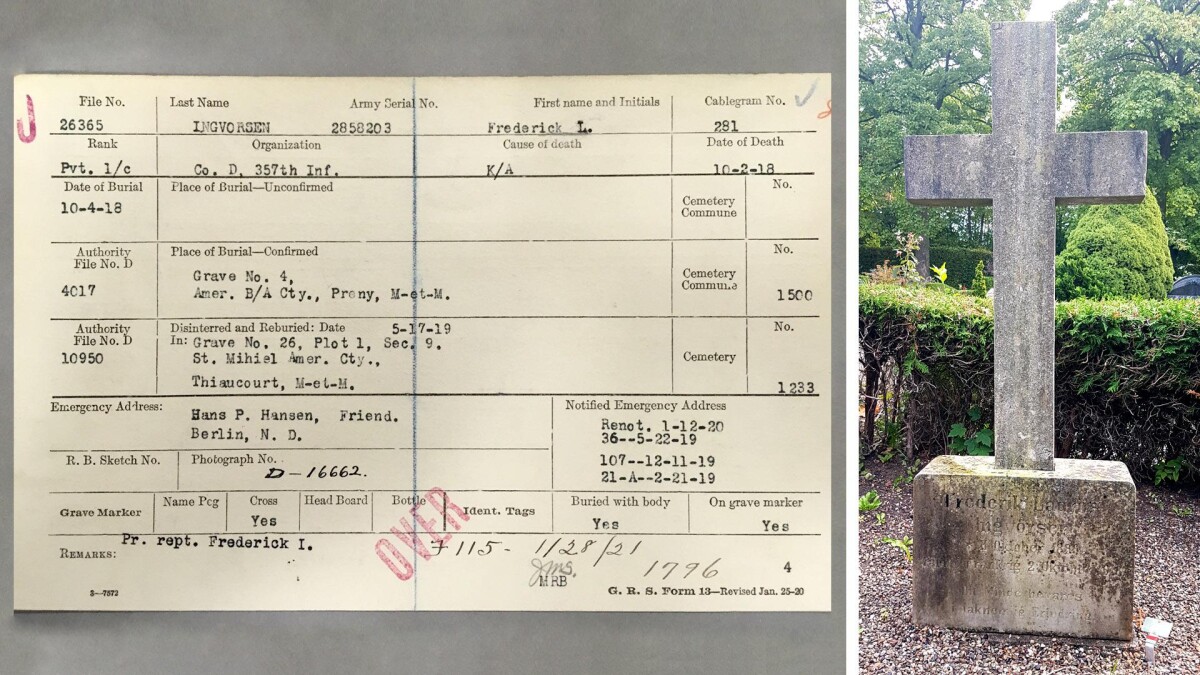 File No. Last Name Army Serial No. First name and Initials Cablegram No.
26365 INGVORSEN 2858203 Frederick L. 281
Rank Organization Cause of death Date of Death
Pvt. 1/c Co. D, 357th Inf. K/A 10-2-18
Date of Burial Place of Burial—Unconfirmed No.
10-4-18 Cemetery
Commune
Authority Place of Burial—Confirmed No.
File No. D
Grave No. 4, Cemetery
4017 Amer. B/A Cty., Preny, M-et-M. Commune 1500
Authority Disinterred and Reburied: Date 5-17-19 No.
File No. D In: Grave No. 26, Plot 1, Sec. 9.
10950 St. Mihiel Amer. Cty., Cemetery
Thiaucourt, M-et-M. 1233
Emergency Address: Notified Emergency Address
Hans P. Hansen, Friend.
Berlin, N. D.
Renot. 1-12-20
36--5-22-19
107--12-11-19
21-A--2-21-19
R. B. Sketch No. Photograph No.
D-16662.
Grave Marker Name Peg Cross Head Board Bottle Ident. Tags Buried with body On grave marker
Yes Yes Yes
OVER
REMARKS: Pr. rept. Frederick I.
115- 1/28/21
MRB 1796 4
3—7572 G. R. S. Form 13—Revised Jan. 25-20